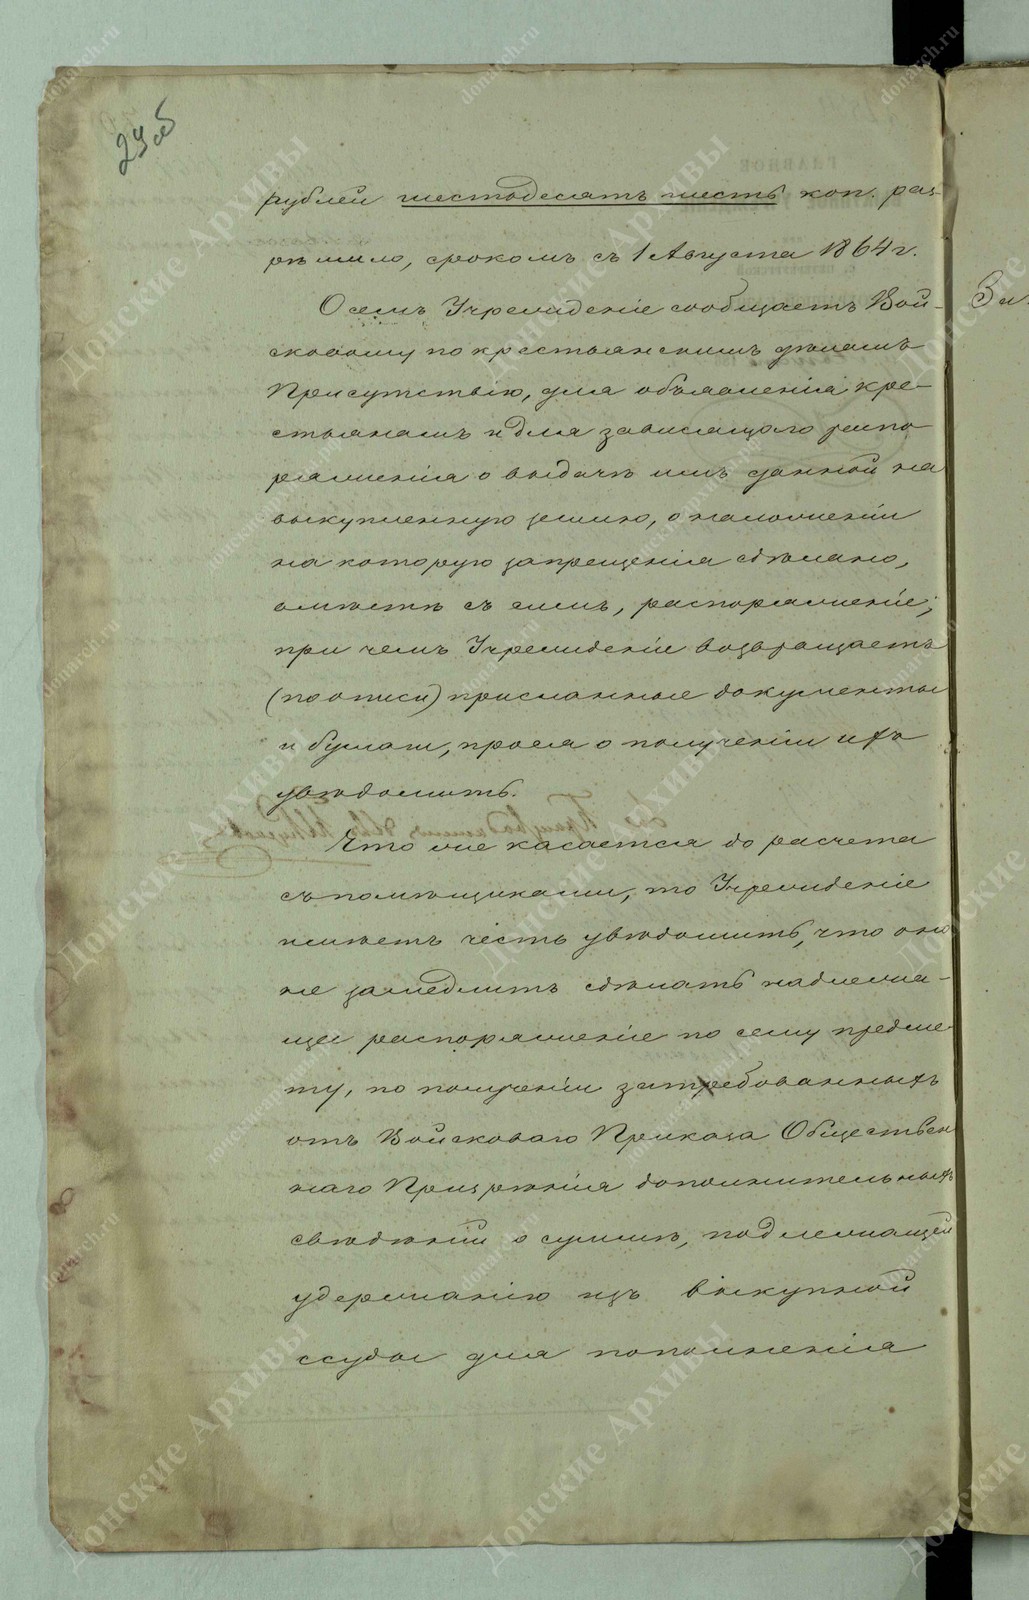 29об
рублей шестьдесятъ шесть коп. раз-
рѣшило, срокомъ съ 1 Августа 1864 г.
О семъ Учрежденіе сообщаетъ Вой-
сковому по крестьянскимъ дѣламъ
Присутствію, для объявленія кре-
стьянамъ и для зависящаго распо-
ряженія о выдачѣ имъ данной на
выкупленную землю, о наложеніи
на которую запрещенія сдѣлано,
вмѣстѣ съ симъ, распоряженіе;
при чемъ Учрежденіе возвращаетъ
(по описи) присланные документы
и бумаги, прося о полученіи ихъ
увѣдомить.
Что же касается до расчета
съ помѣщиками, то Учрежденіе
имѣетъ честь увѣдомить, что оно
не замедлитъ сдѣлать надлежа-
щее распоряженіе по сему предме-
ту, по полученіи затребованныхъ
отъ Войсковаго Приказа Обществен
наго Призрѣнія дополнительныхъ
свѣдѣній о суммѣ, подлежащей
удержанію изъ выкупной
ссуды для пополненія